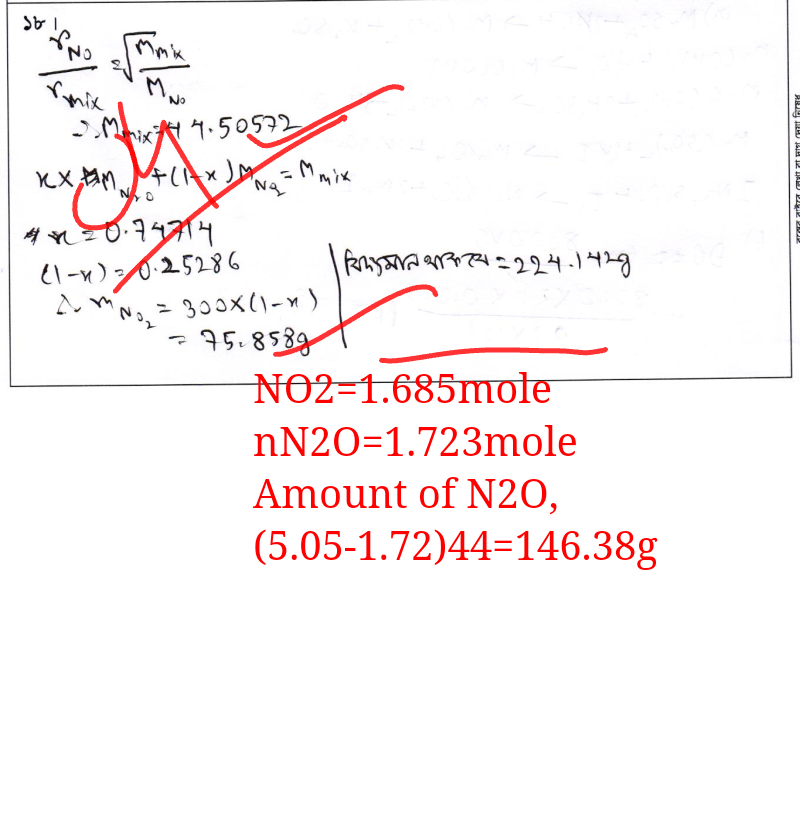 ১৮।
r_NO / r_mix = √(M_mix / M_NO)
∴ M_mix = 44.50572
x × M_N2O + (1-x) M_NO2 = M_mix
x = 0.74714
(1-x) = 0.25286
∴ m_NO2 = 300×(1-x)
= 75.858g
বিদ্যমান থাকবে = 224.142g
NO2=1.685mole
nN2O=1.723mole
Amount of N2O,
(5.05-1.72)44=146.38g